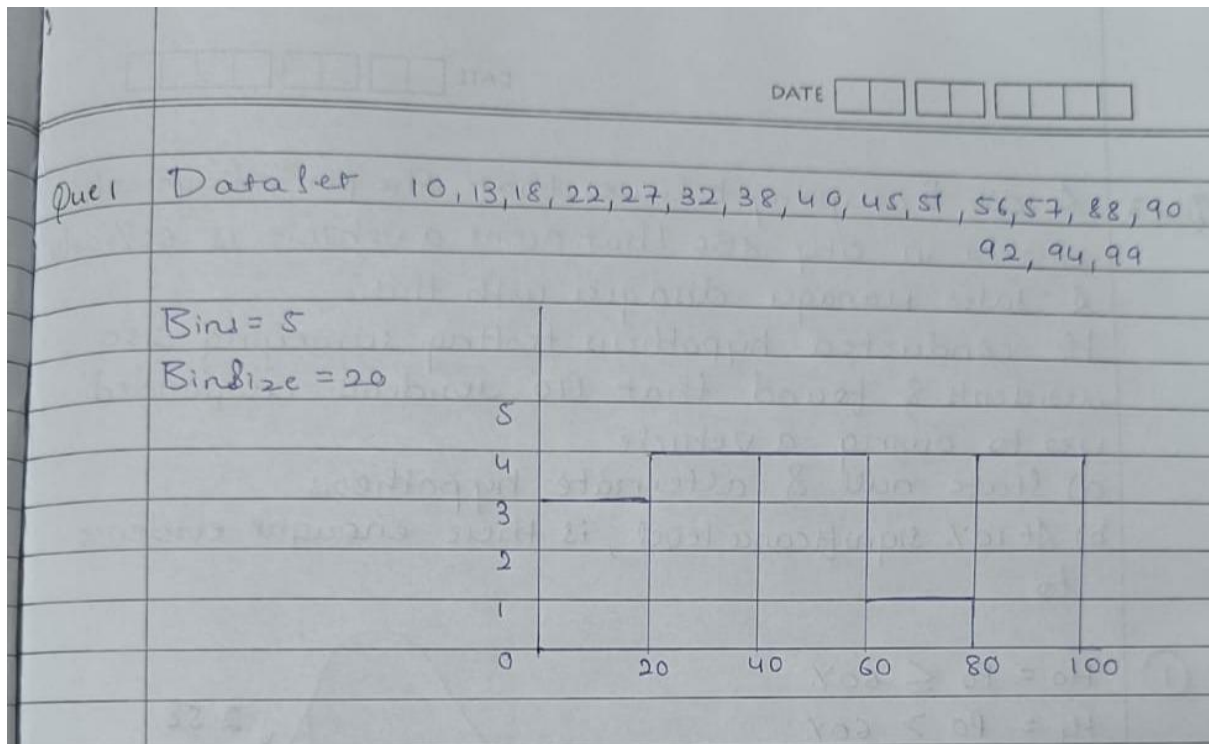 DATE
Que 1 DataSet 10, 13, 18, 22, 27, 32, 38, 40, 45, 51, 56, 57, 88, 90
92, 94, 99
Bins = 5
BinSize = 20
5
4
3
2
1
0 20 40 60 80 100